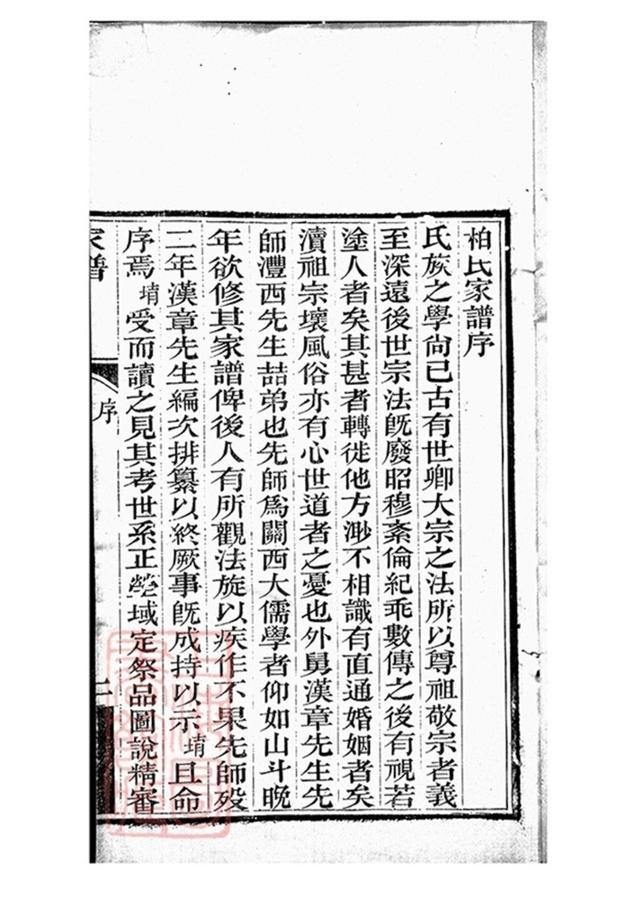 柏氏家譜序
氏族之學尙已古有世卿大宗之法所以尊祖敬宗者義
至深遠後世宗法旣廢昭穆紊倫紀乖數傳之後有視若
塗人者矣其甚者轉徙他方渺不相識有直通婚姻者矣
瀆祖宗壞風俗亦有心世道者之憂也外舅漢章先生先
師灃西先生喆弟也先師爲關西大儒學者仰如山斗晚
年欲修其家譜俾後人有所觀法旋以疾作不果先師歿
二年漢章先生編次排纂以終厥事旣成持以示堉且命
序焉堉受而讀之見其考世系正塋域定祭品圖說精審
家譜
序